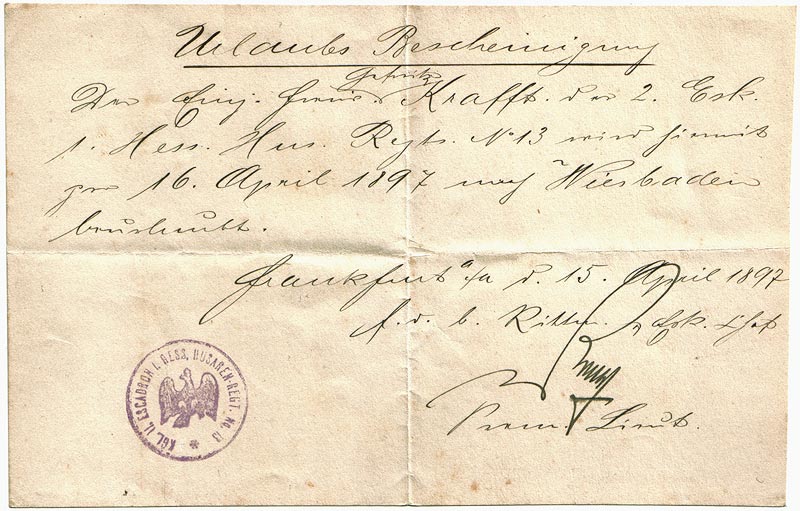 Urlaubs Bescheinigung
Der Einj. Freiw. Gefreite Krafft. der 2. Esk.
1. Hess. Hus. Regts. No 13 wird hiermit
zum 16. April 1897 nach Wiesbaden
beurlaubt.
Frankfurt a/M d. 15. April 1897
f. d. b. Rittm. u. Esk. Chef
Prem. Lieut.
KGL. II. ESCADRON I. HESS. HUSAREN-REGT. No. 13